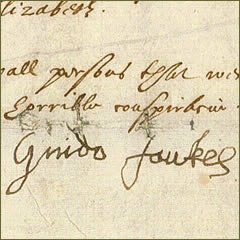 Elizabeth.
all persons that wer
horrible conspiracie.
Guido Faukes